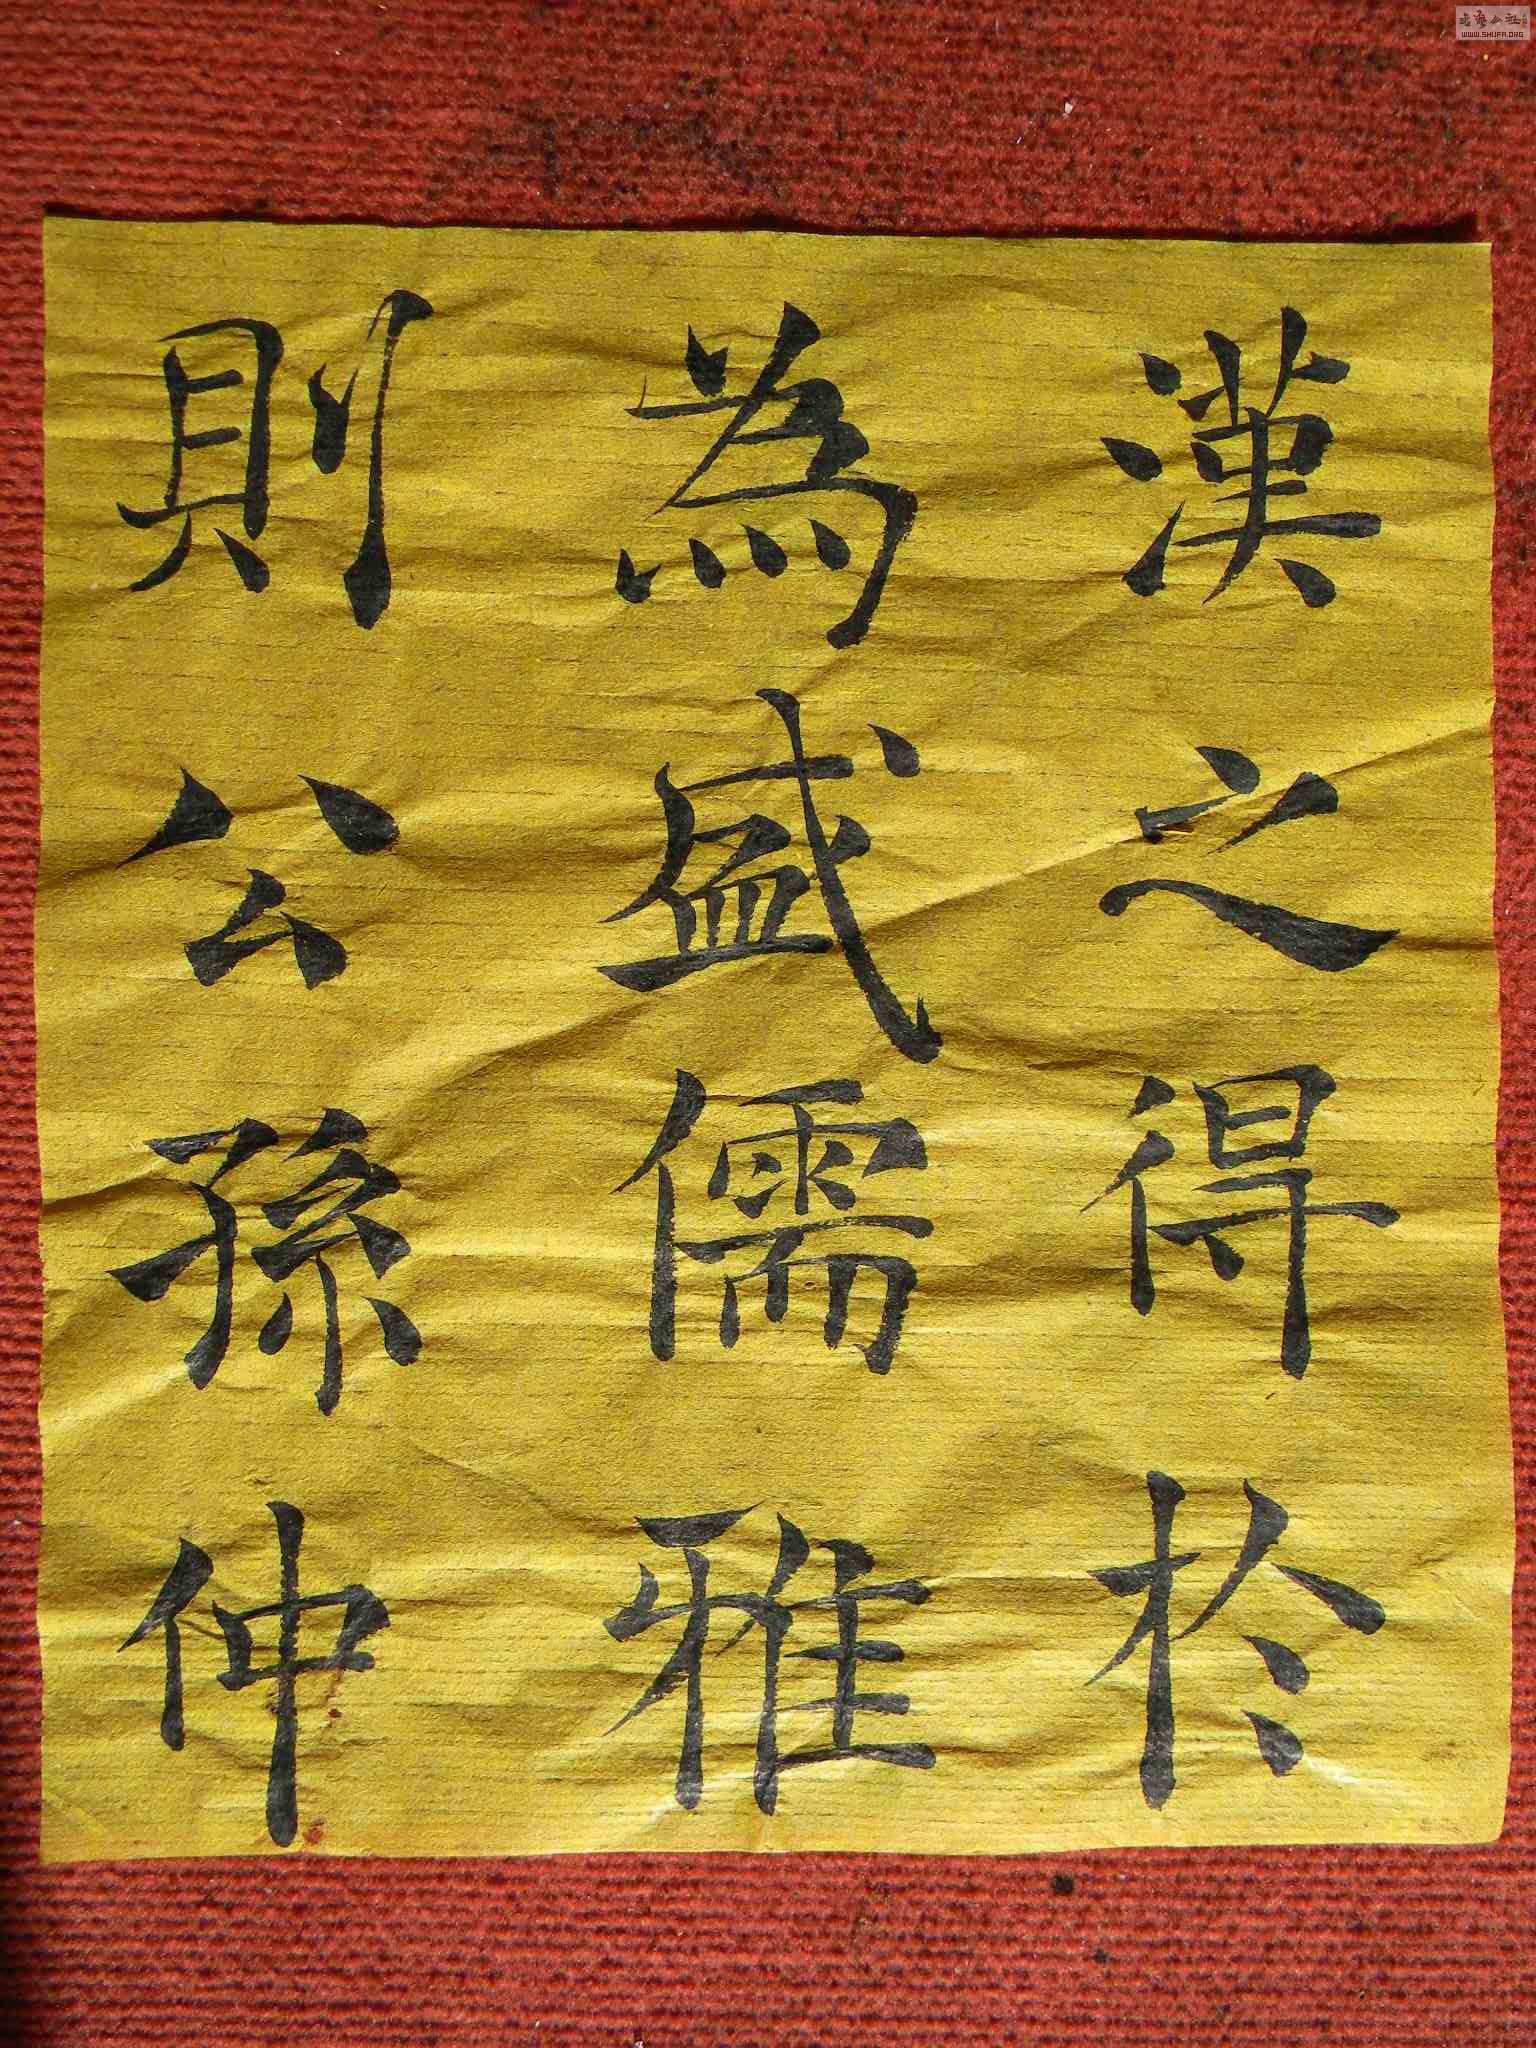 漢之得於
為盛儒雅
則公孫仲
WWW.SHUFA.ORG